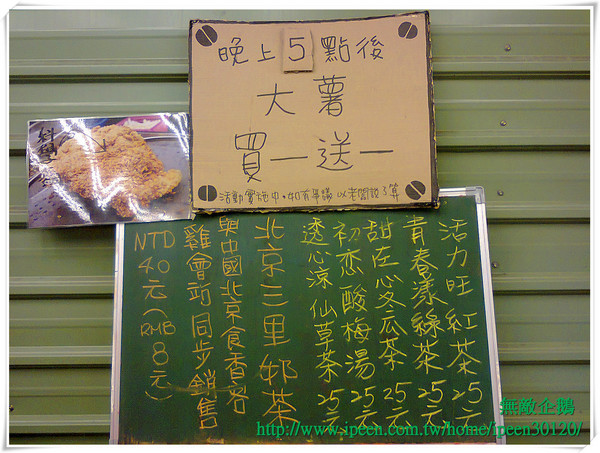 晚上5點後
大薯
買一送一
活動實施中,如有爭議以老闆說了算
科學
活力旺紅茶25元
青春漾綠茶25元
甜在心冬瓜茶25元
初恋酸梅湯25元
透心涼仙草茶25元
北京三里邨茶
與中國北京食香客
雞會站同步銷售
NTD40元(RMB8元)
無敵企鵝
http://www.ipeen.com.tw/home/ipeen30120/